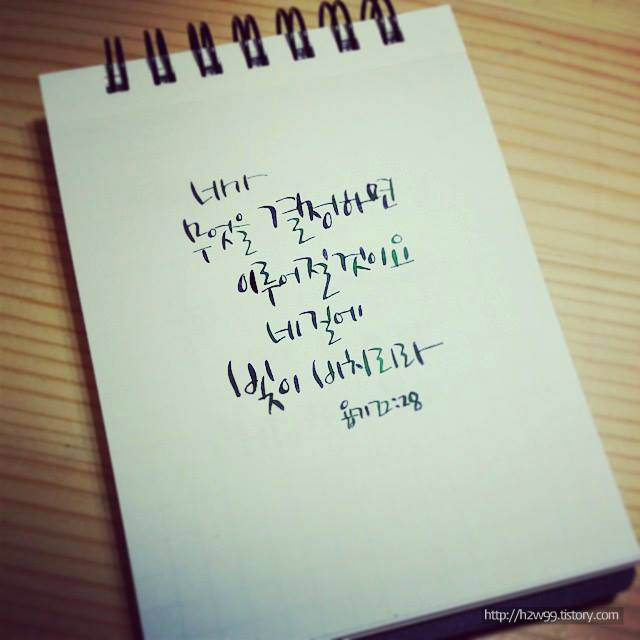 네가
무엇을 결정하면
이루어질것이요
네길에
빛이 비치리라
욥기22:28
http://h2w99.tistory.com